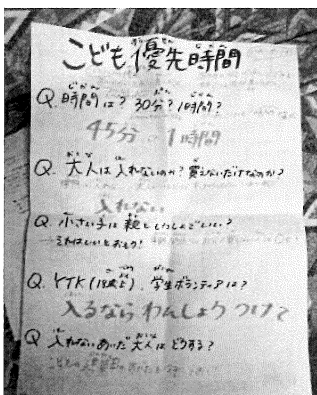 こども優先時間
Q. 時間は? 30分? 1時間?
45分 1時間
Q. 大人は入れないのか? 買えないだけなのか?
入れない
Q. 小さい子は親といっしょでいい?
→それはいいとおもう!
Q. YTK(18歳以上)、学生ボランティアは?
入るなら わんしょう つけて
Q 入れないあいだ大人はどうする?